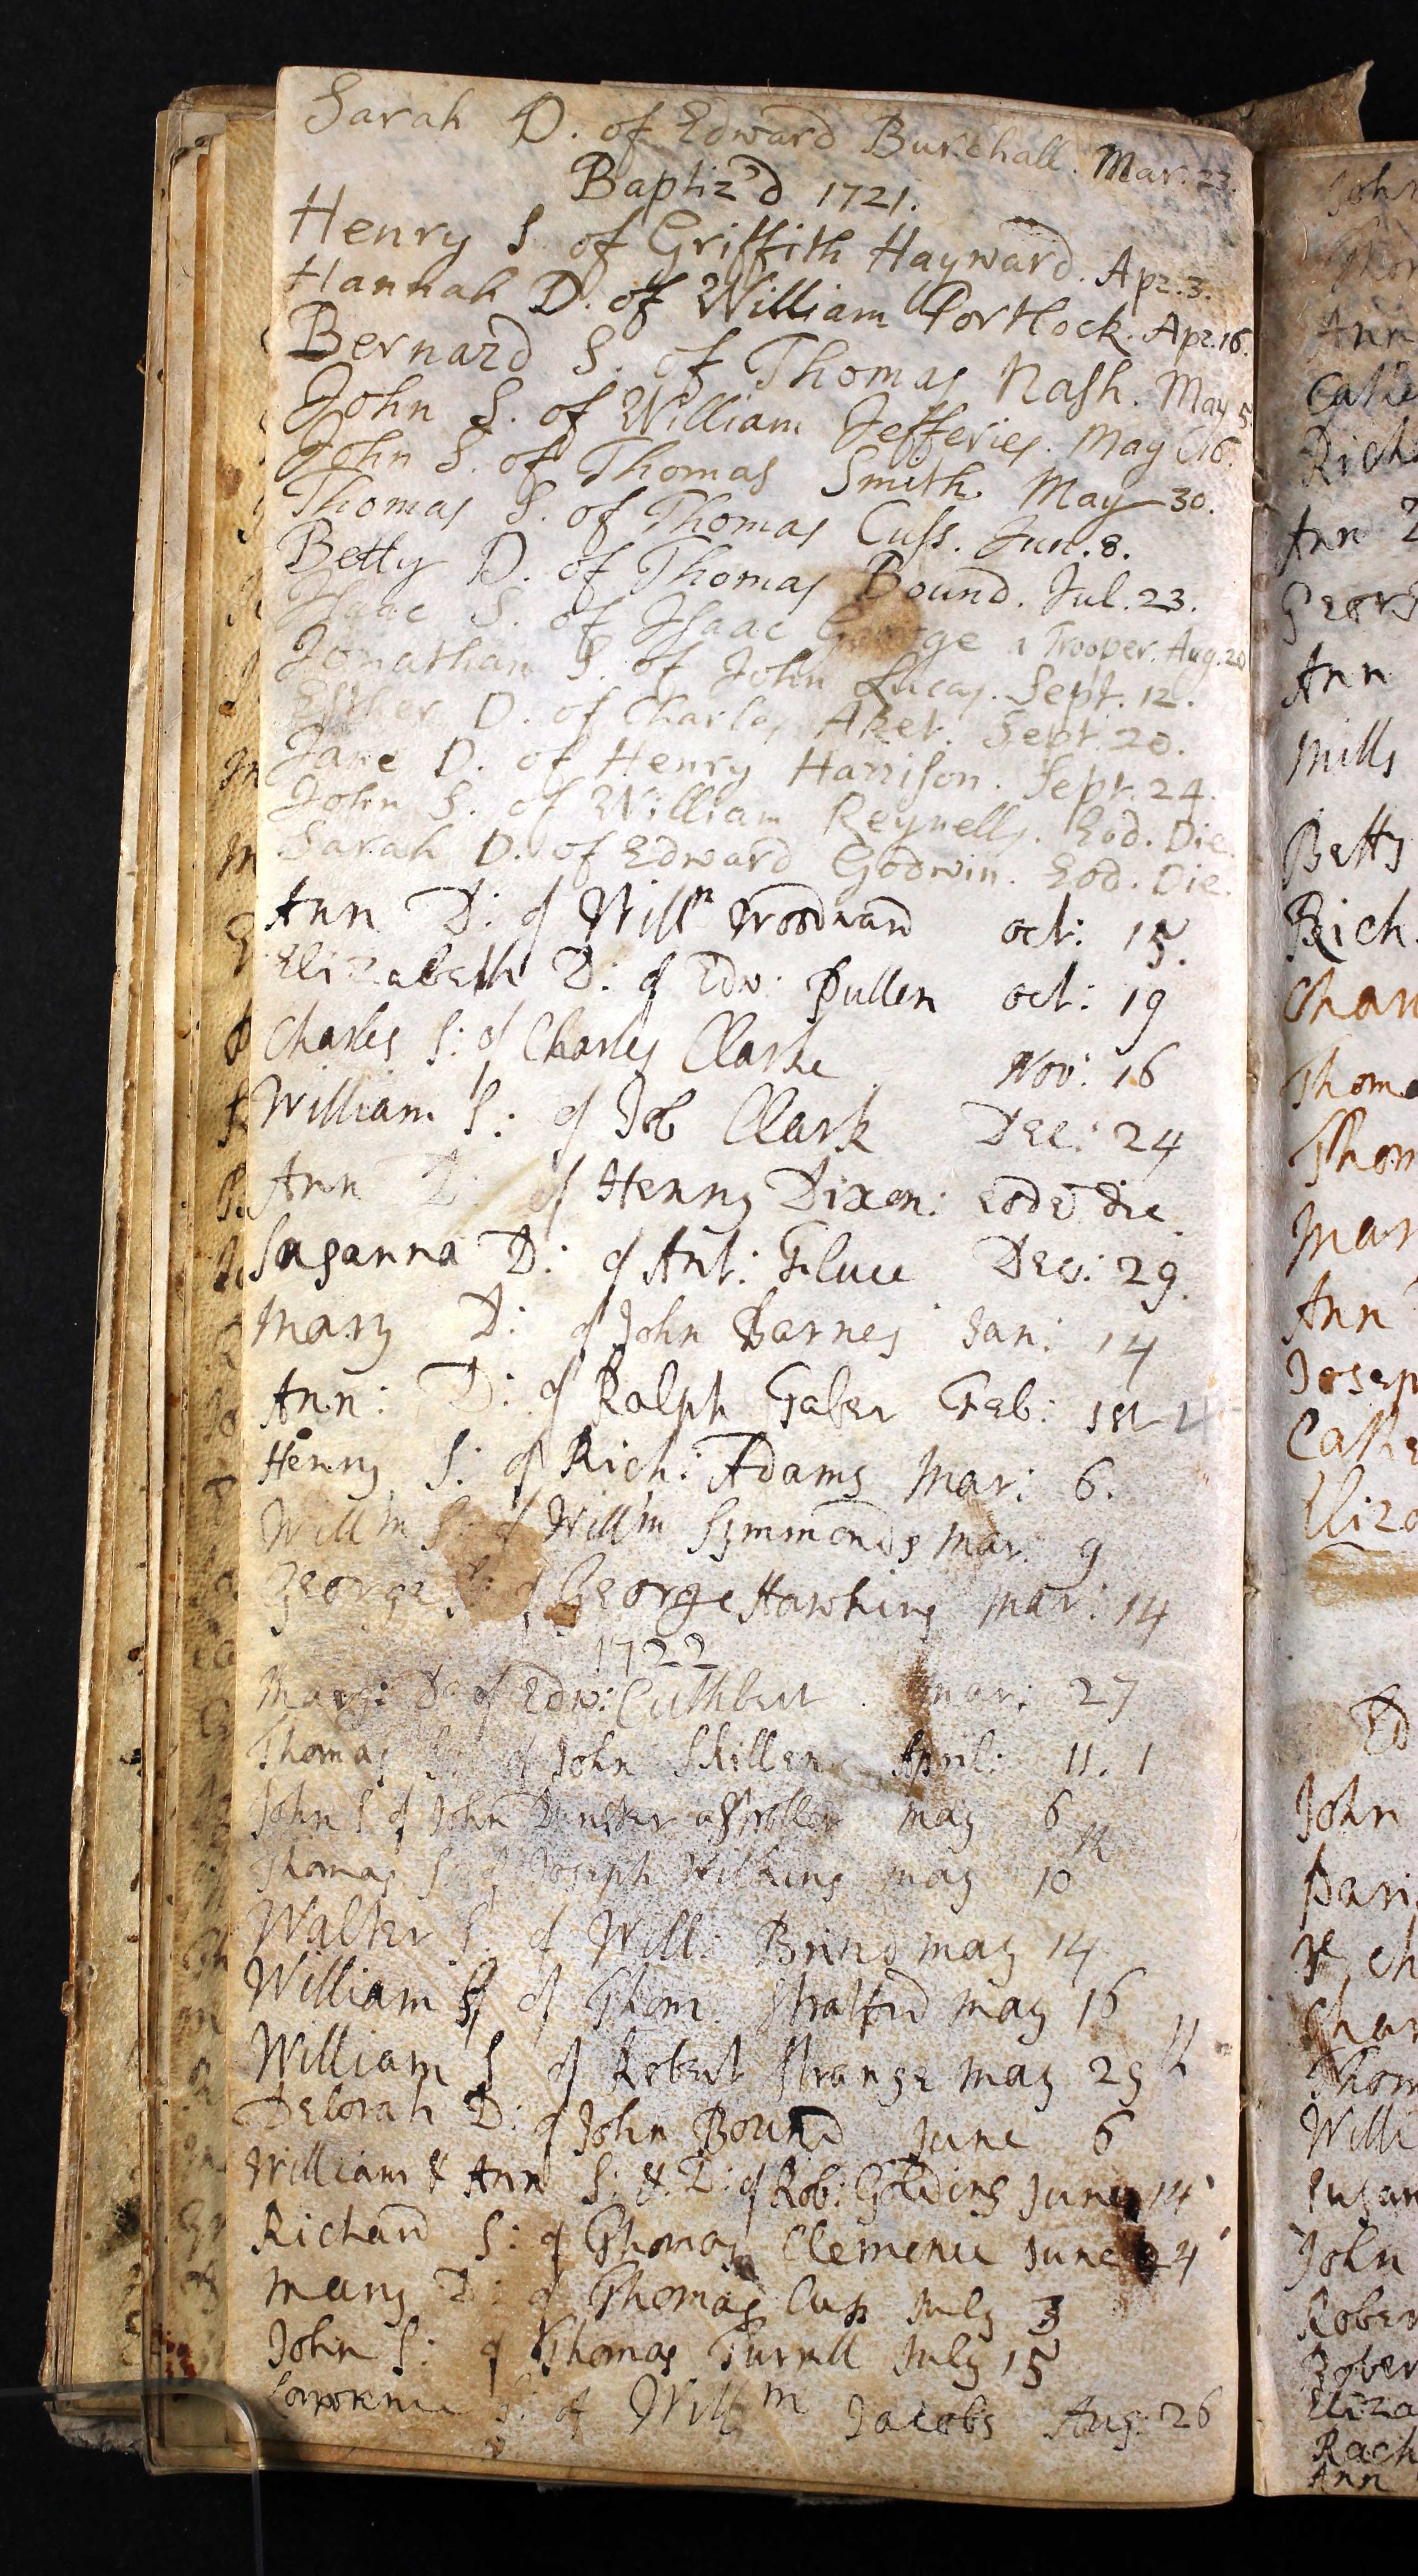 Sarah D. of Edward Burchall. Mar. 23.
Baptiz'd 1721.
Henry S. of Griffith Hayward. Apr. 3.
Hannah D. of William Portlock. Apr. 16.
Bernard S. of Thomas Nash. May 5
John S. of William Jefferies. May 16.
John S. of Thomas Smith. May 30.
Thomas S. of Thomas Cuss. Jun. 8.
Betty D. of Thomas Bound. Jul. 23.
Isaac S. of Isaac George a Trooper. Aug. 20
Jonathan S. of John Lucas. Sept. 12.
Esther D. of Charles Aker. Sept. 20.
Jane D. of Henry Harrison. Sept. 24.
John S. of William Reynells. Eod. Die.
Sarah D. of Edward Godwin. Eod. Die.
Ann D: of Willm Woodward oct: 15.
Elizabeth D: of Edw: Pullen oct: 19
Charles S: of Charles Clarke Nov: 16
William S: of Job Clark Dec: 24
Ann D: of Henry Dixon: eode die
Susanna D: of Ant: Dec: 29.
Mary D: of John Barnes Jan: 14
Ann: D: of Ralph Faber Feb:
Henry S: of Rich: Adams Mar: 6.
Willm S: of Willm Symmonds Mar: 9
George S: of George Hawkins mar: 14
1722
Mary: D: of Edw: Cuthbert mar: 27
Thomas S: of John Skillen April: 11. 1
John S of John may 6
Thomas S: of Joseph Wilkins may 10th
Walter S. of Will: Brind may 14
William S of Thom: Stratford may 16
William S of Robert Strange may 29
Deborah D: of John Bound June 6
William & Ann S: & D: of Rob: Golding June 14
Richard S: of Thomas Clemence June 24
Mary D: of Thomas Cuss July 3
John S: of Thomas Turrell July 15
Lawrence S: of Willm Jacobs Aug: 26
John
Ann
Rich
Ann
Geor
Ann
Mills
Betty
Rich.
Char
Thom
Thom
Mar
Ann
Josep
Cathe
Eliza
John
Thom
Willi
Susan
John
Rober
Rober
Eliza
Rach
Ann